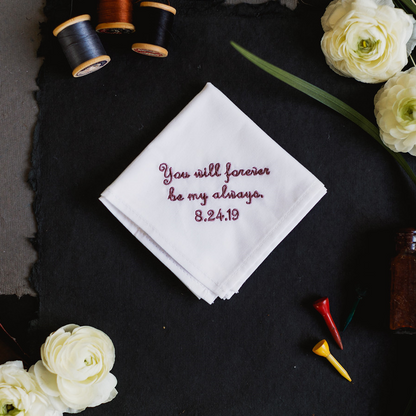 You will forever
be my always.
8.24.19